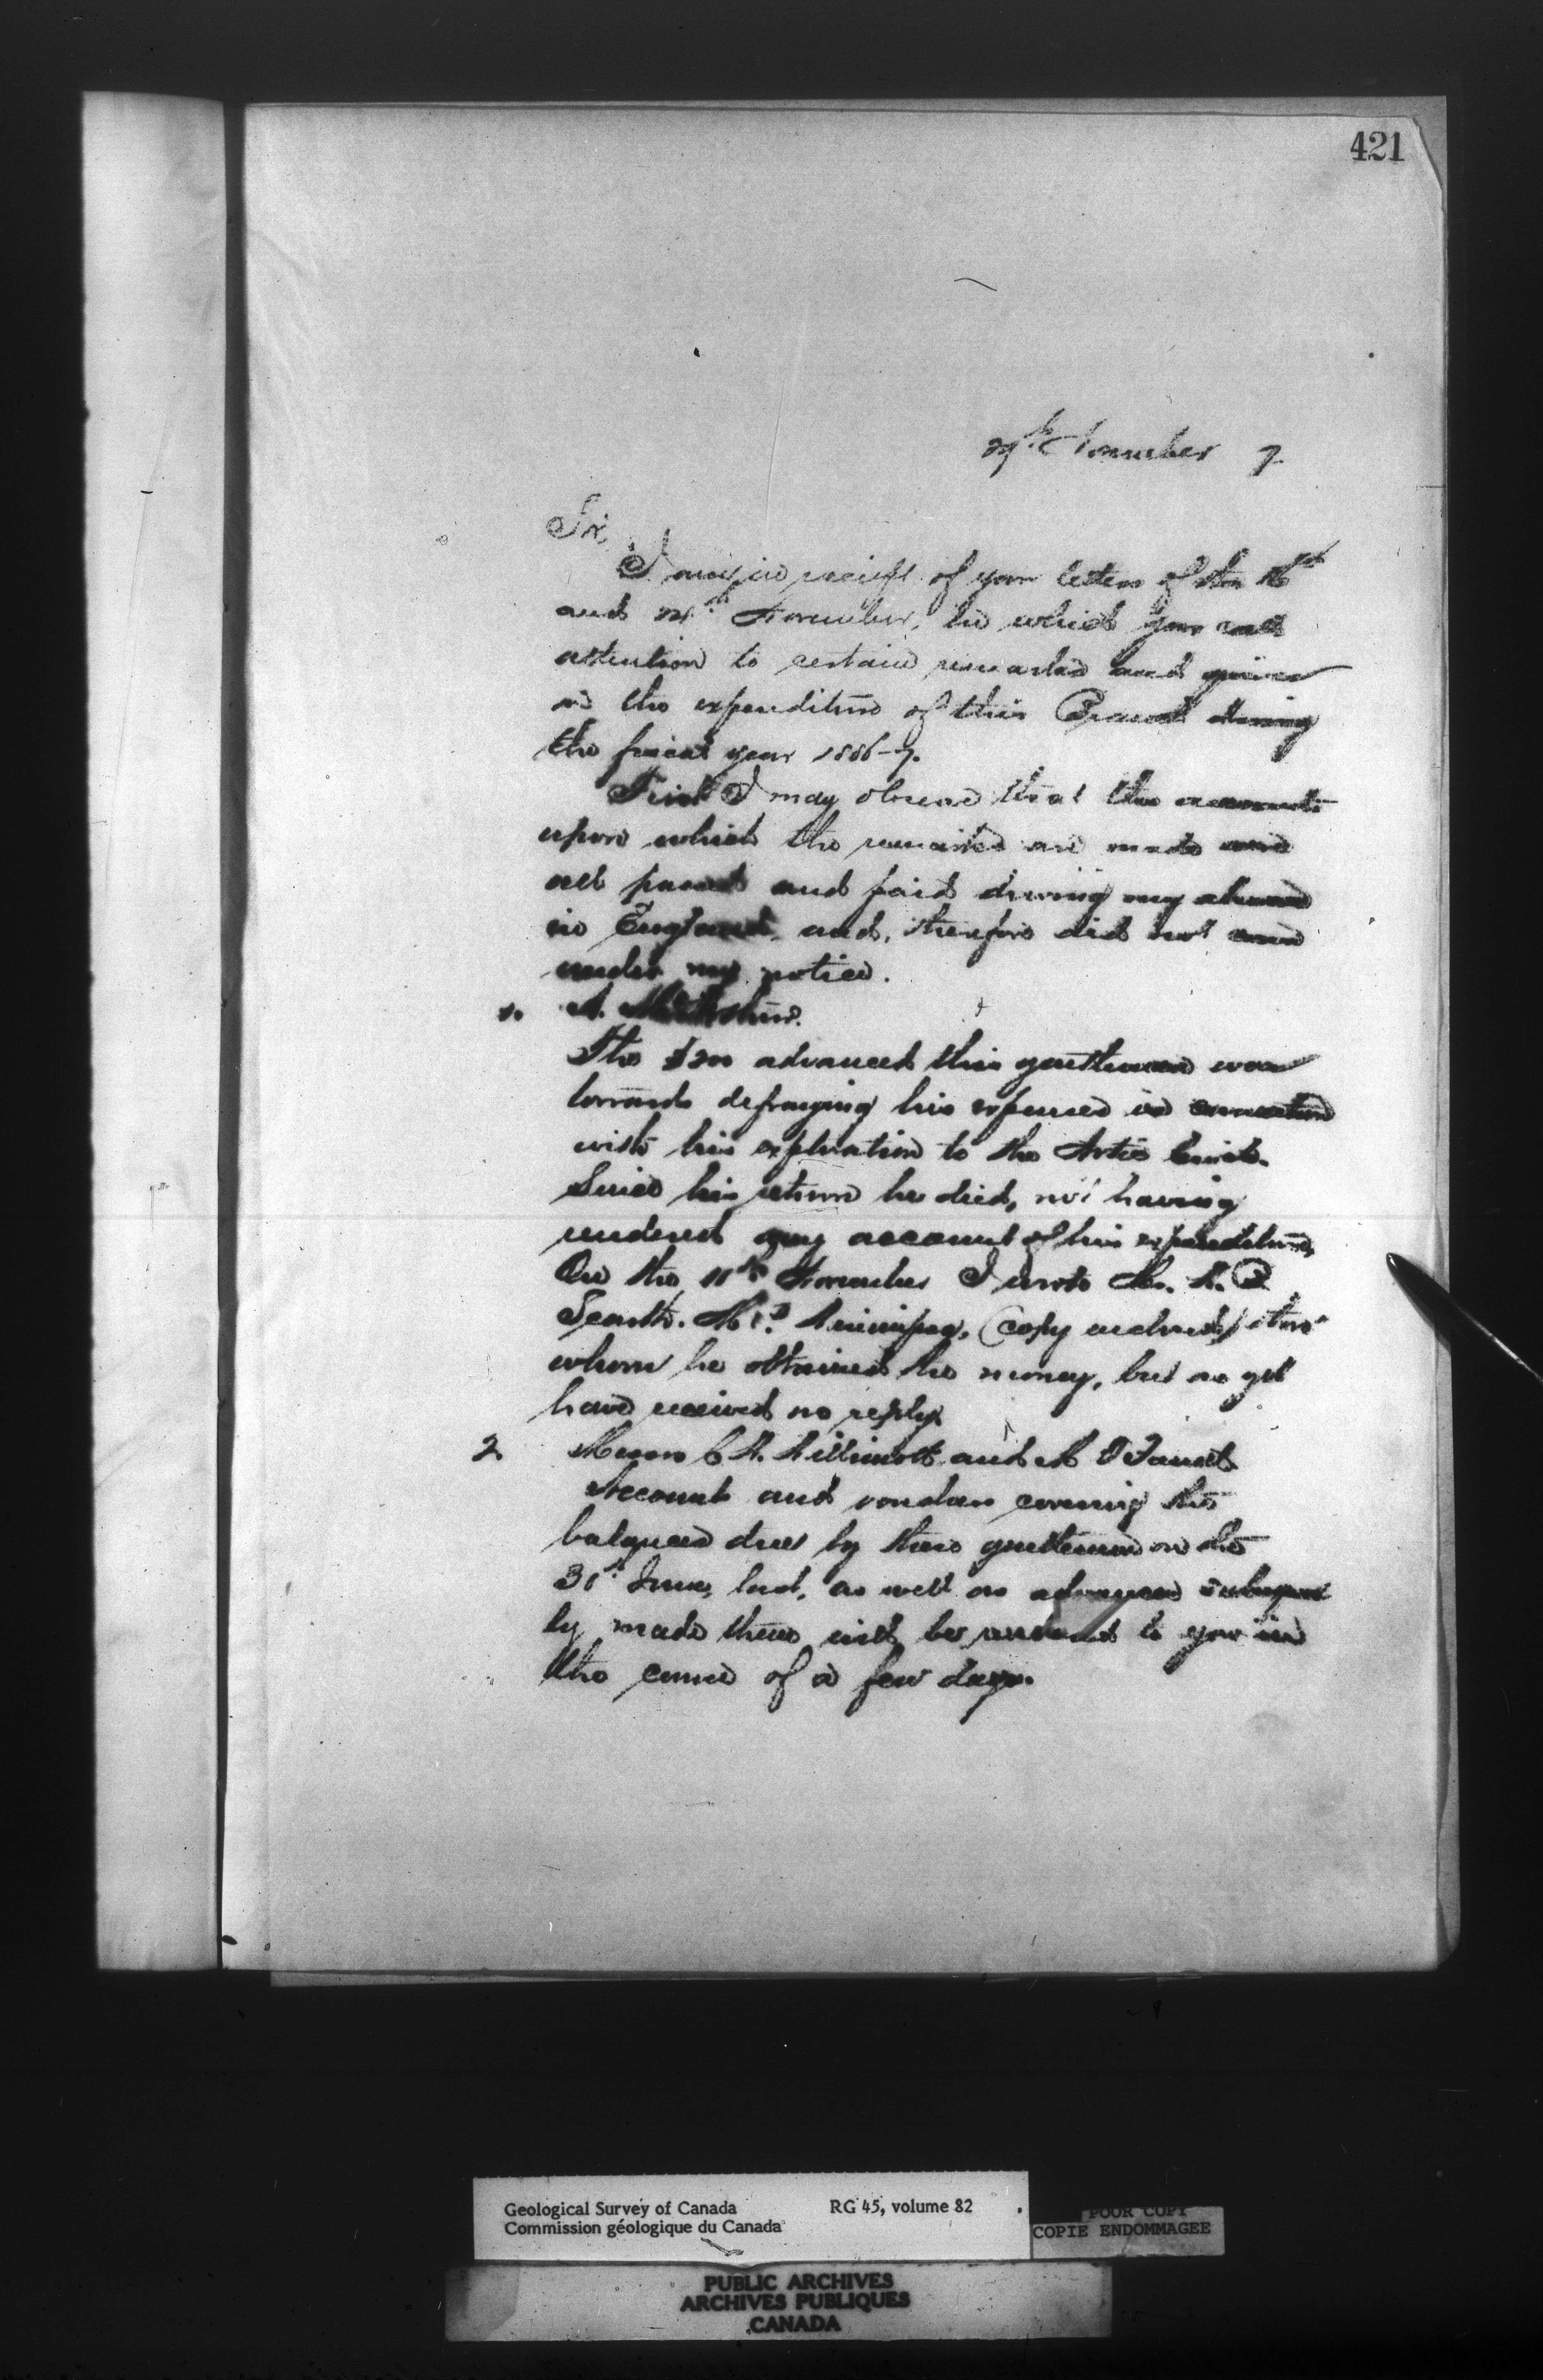 421
29th November 7
Sir,
I am in receipt of your letters of the 16th
and 24th November, in which you call
attention to certain remarks and queries
on the expenditure of this Branch during
the fiscal year 1886-7.
First I may observe that the accounts
upon which the remarks are made were
all passed and paid during my absence
in England and, therefore did not come
under my notice.
1. A.
The $200 advanced this gentleman was
towards defraying his expenses in connection
with his exploration to the Arctic Circle.
Since his return he died, not having
rendered any account of his expenditure,
On the 11th November I wrote Mr. W. B
Scarth. M.P. Winnipeg, (copy enclosed) from
whom he obtained the money, but as yet
have received no reply.
2 Messrs C. W. Willimott and
Account and vouchers covering the
balances due by these gentlemen on the
June, last, as well as advances subsequent
ly made them will be to you in
the course of a few days.
Geological Survey of Canada RG 45, volume 82
Commission géologique du Canada
POOR COPY
COPIE ENDOMMAGEE
PUBLIC ARCHIVES
ARCHIVES PUBLIQUES
CANADA